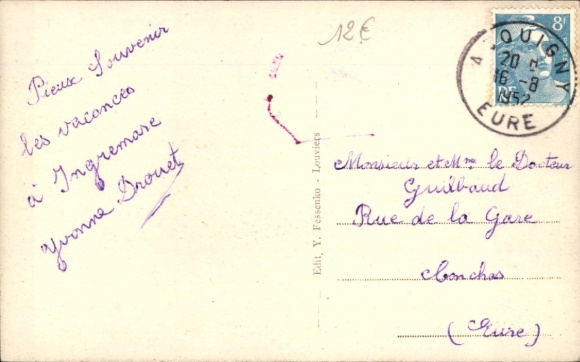 12€
Pieux Souvenir
des vacances
à Ingremare
Yvonne Drouet
Edit. Y. Fessenko - Louviers
8F
RF
ACQUIGNY
20 H
16 - 8
1952
EURE
Monsieur et Mme le Docteur
Guilbaud
Rue de la Gare
Conches
(Eure)